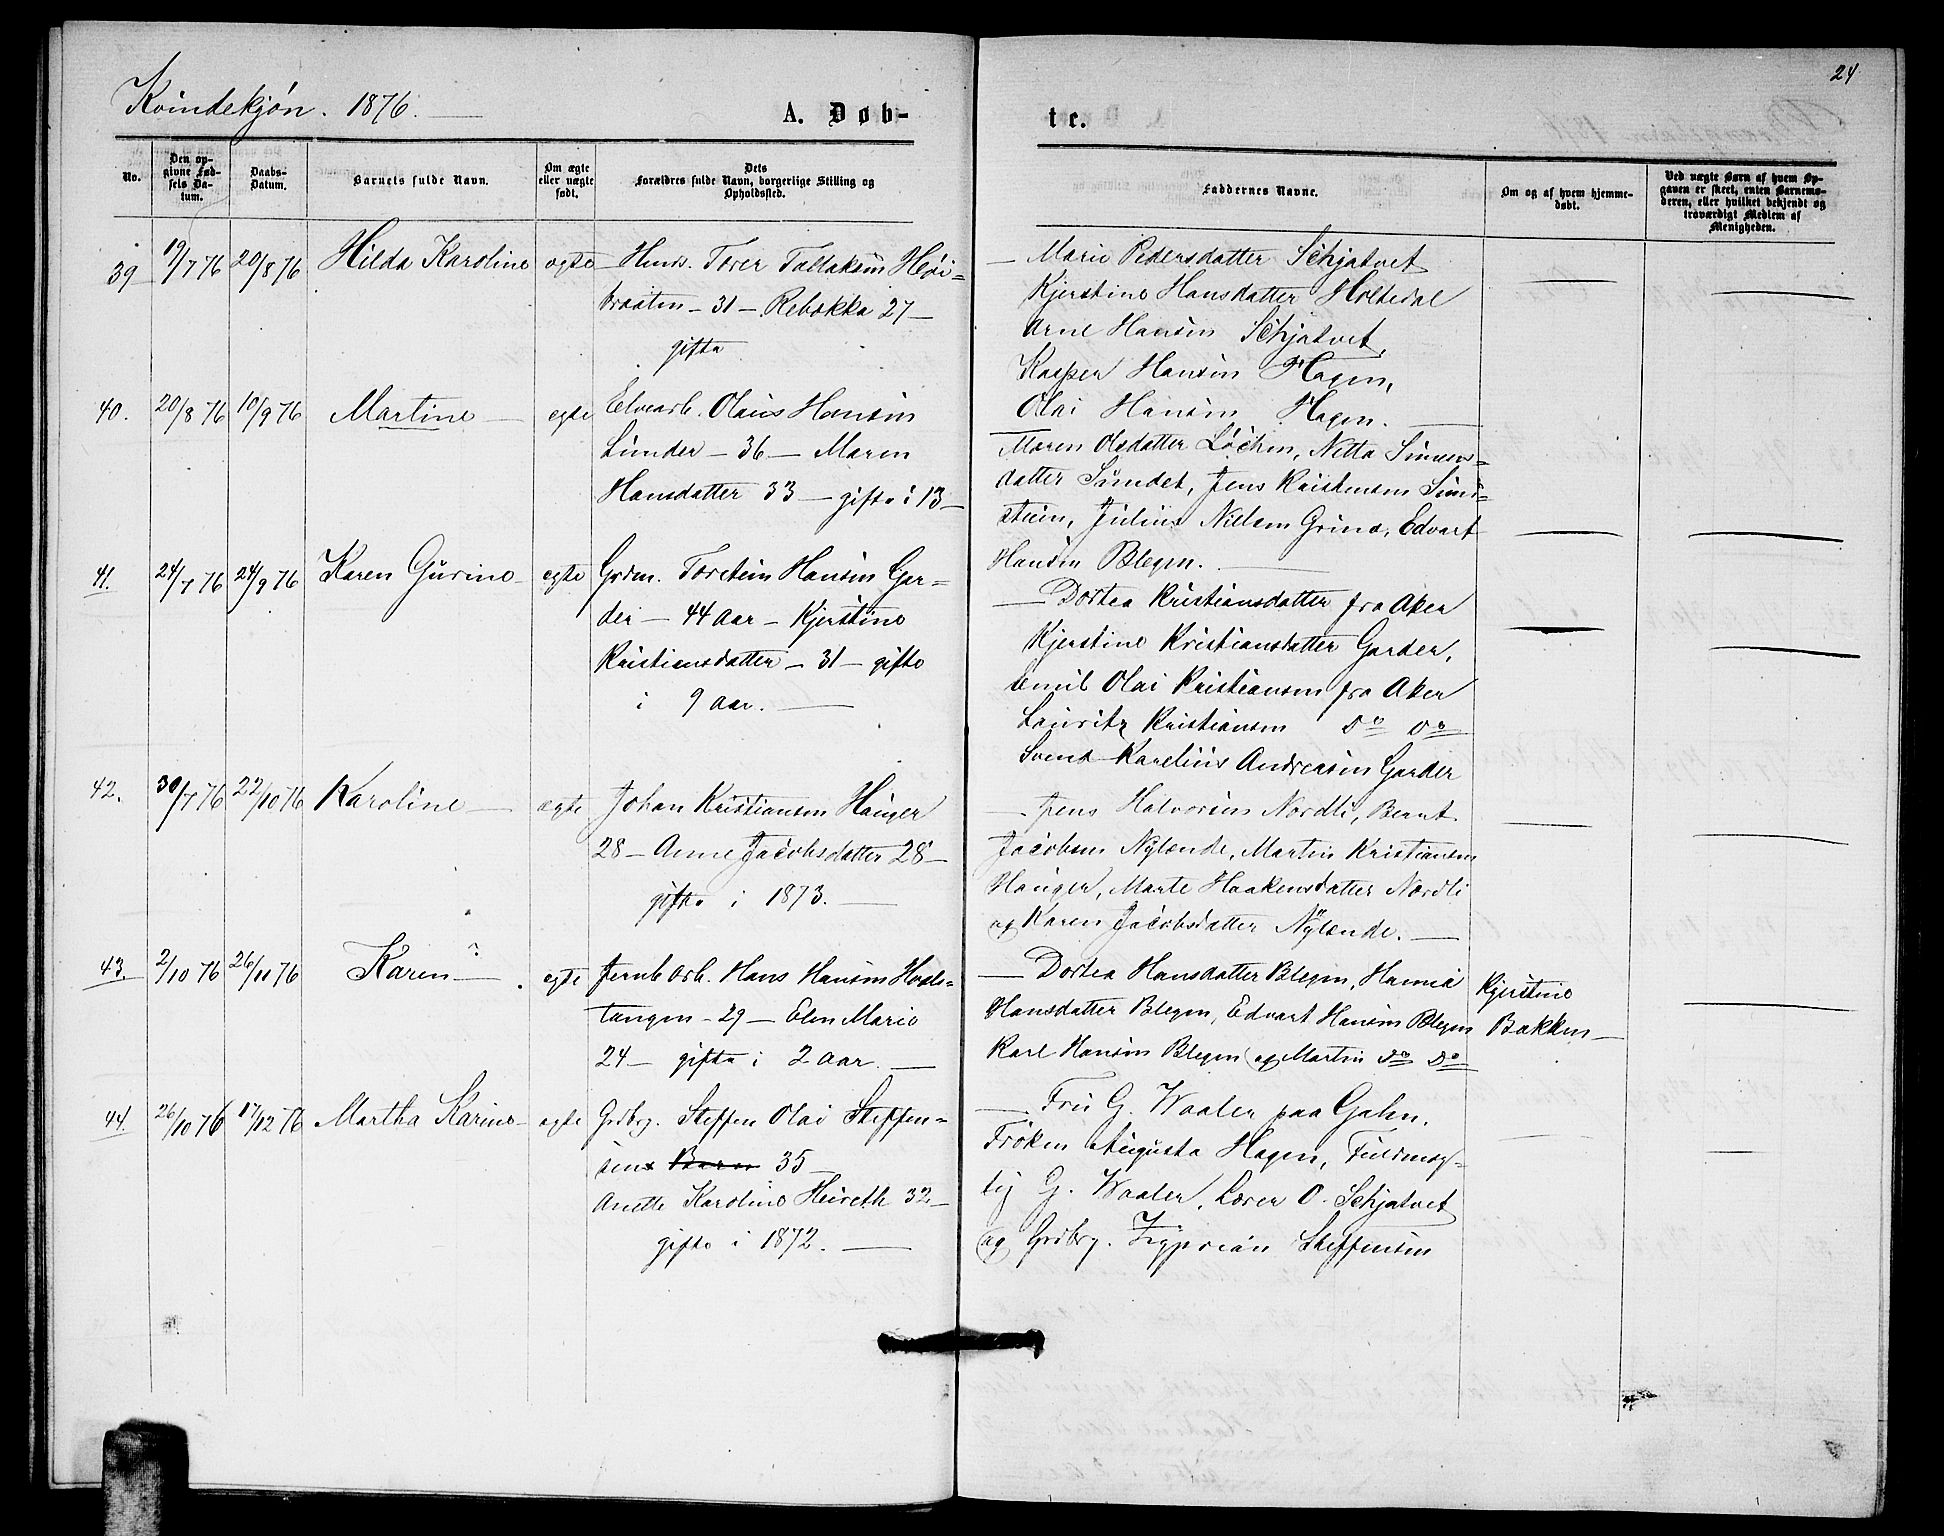 24
Kvindekjøn. 1876.
A. Døb-
te.
No.
Den op-
givne Fød-
sels Da-
tum.
Daabs-
Datum.
Barnets fulde Navn.
Om ægte
eller uægte
født.
Dets
Forældres fulde Navn, borgerlige Stilling og
Opholdssted.
Faddernes Navne.
Om og af hvem hjemme-
døbt.
Ved uægte Børn af hvem Op-
gaven er skeet, enten Barnemo-
deren, eller hvilket bekjendt og
troværdigt Medlem af
Menigheden.
39 19/7 76 20/8 76 Hilda Karoline ægte Husm. Torer Tallaksen Høi-
braaten - 31 - Rebekka 27 -
gifte
Marie Pedersdatter Schjatvet
Kjerstine Hansdatter Holtedal
Arne Hansen Schjatvet,
Kasper Hansen Hagen,
Olai Hansen Hagen.
40. 20/8 76 10/9 76 Martine ægte Elvearb. Olaus Hansen
Sunder - 36 - Maren
Hansdatter 33 - gifte i 13 -
Maren Olsdatter Løchen, Netta Simens-
datter Sundet, Jens Kristensen
Julius Nielsen Grina, Edvart
Hansen Blegen.
41. 24/7 76 24/9 76 Karen Gurine ægte Grdm. Torstein Hansen Gar-
der - 44 Aar - Kjerstine
Kristiansdatter - 31 - gifte
i 9 aar.
Dortea Kristiansdatter fra Aker
Kjerstine Kristiansdatter Garder,
Emil Olai Kristiansen fra Aker
Lauritz Kristiansen Do Do
Svend Karelius Andreasen Garder
42. 30/7 76 22/10 76 Karoline ægte Johan Kristiansen Hauger
28 - Anne Jacobsdatter 28 -
gifte i 1873.
Jens Halvorsen Nordli, Bernt
Jacobsen Nylænde, Martin Kristiansen
Hauger, Marte Haakensdatter Nordli
og Karen Jacobsdatter Nylænde.
43. 2/10 76 26/11 76 Karen ægte Jernb. Arb. Hans Hansen Hasle-
tangen - 29 - Elen Marie
24 - gifte i 2 Aar.
Dortea Hansdatter Blegen, Hanna
Hansdatter Blegen, Edvart Hansen Blegen
Karl Hansen Blegen og Martin Do Do
Kjerstine
Bakken
44. 26/10 76 17/12 76 Martha Karine ægte Grdbrg. Steffen Olai Steffen-
sen 35 -
Anette Karoline Heireth 32 -
gifte i 1872.
Fru G. Waaler paa Galen.
Frøken Augusta Hagen, Fuldmæg-
tig G. Waaler, Lærer O. Schjatvet
og Grdbrg. Steffensen